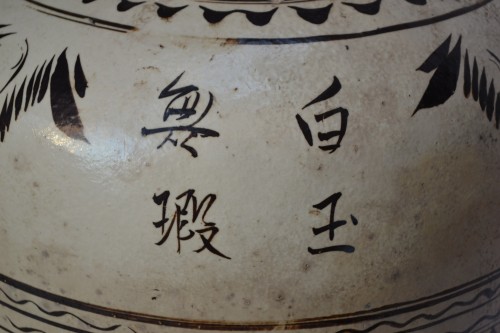 白玉
無瑕